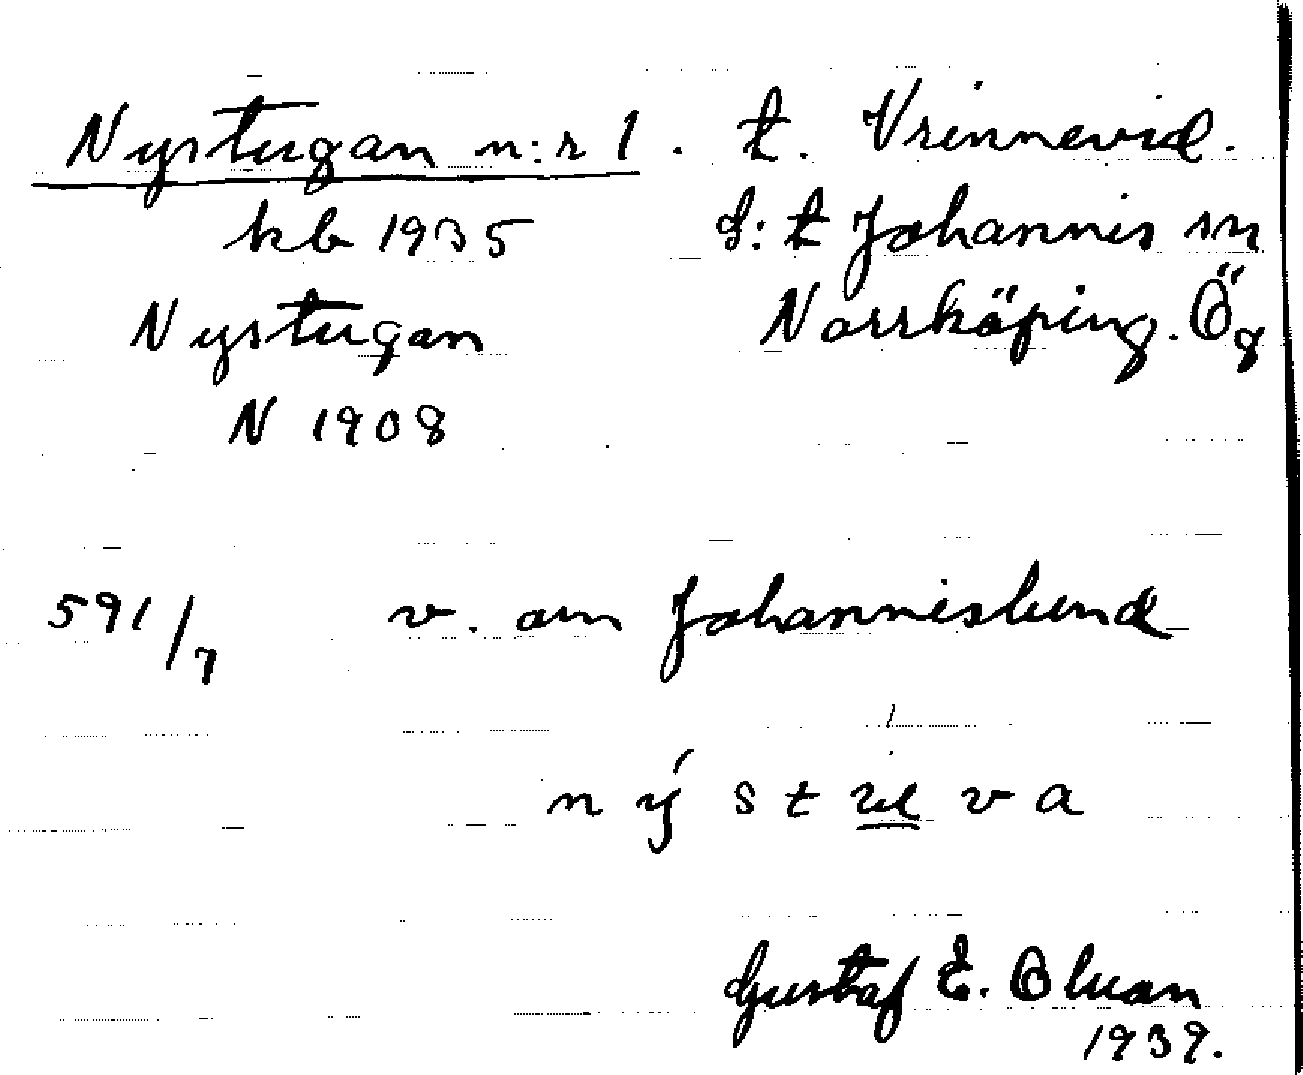 Nystugan n:r 1. t. Vrinnevid.
kb 1935 S:t Johannis sn
Nystugan Norrköping. Ög
N 1908
591/7 v. om Johanneslund
n ý s t u v a
Gustaf E. Oluan
1939.